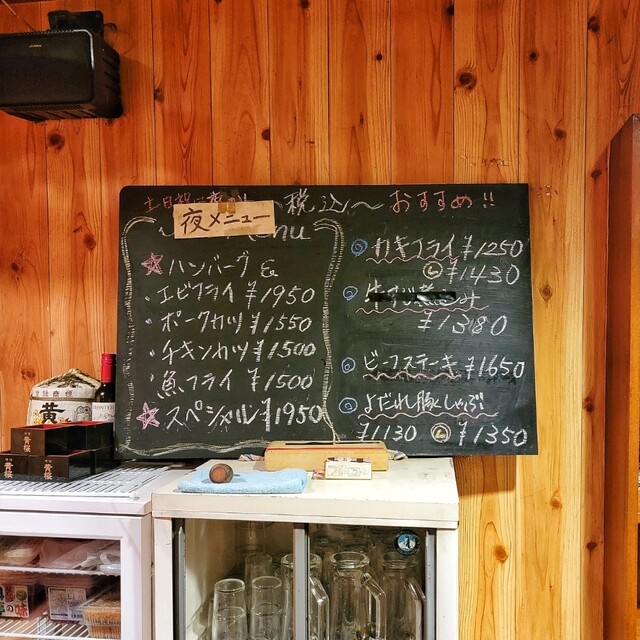 土日祝
夜メニュー
〜税込〜
おすすめ!!
ハンバーグ &
・エビフライ ¥1950
・ポークカツ ¥1550
・チキンカツ ¥1500
・魚フライ ¥1500
スペシャル ¥1950
カキフライ ¥1250
Ⓛ ¥1430
¥1380
ビーフステーキ ¥1650
よだれし豚しゃぶ
¥1130 Ⓛ ¥1350
黄
黄桜
黄桜
の味